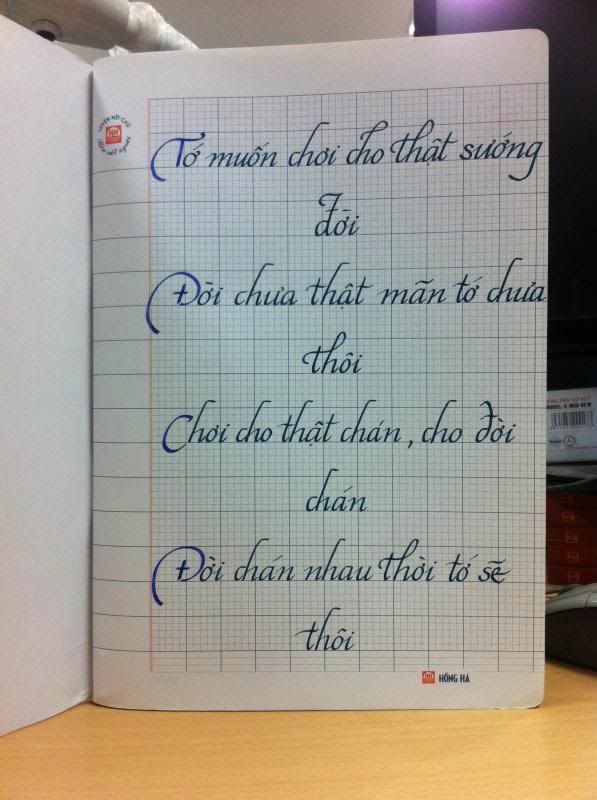 Tớ muốn chơi cho thật sướng
đời
Đời chưa thật mãn tớ chưa
thôi
Chơi cho thật chán, cho đời
chán
Đời chán nhau thời tớ sẽ
thôi
HỒNG HÀ